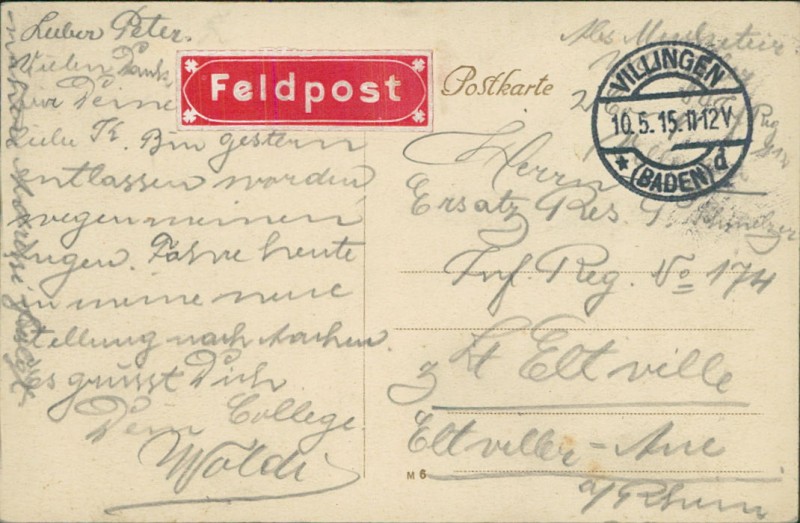 Lieber Peter.
Vielen Dank
für Deine
liebe K. Bin gestern
entlassen worden
wegen meinen
Augen. Fahre heute
in meine neue
Stellung nach Aachen.
Es grüsst Dich
Dein College
Woldi
Feldpost
Postkarte
VILLINGEN
10.5.15.11-12V
* (BADEN) d
Abs. Musketier
Herrn
Ersatz Res. P.
Inf. Reg. No 174
z. Zt Eltville
Eltviller-Aue
a/Rhein
M 6